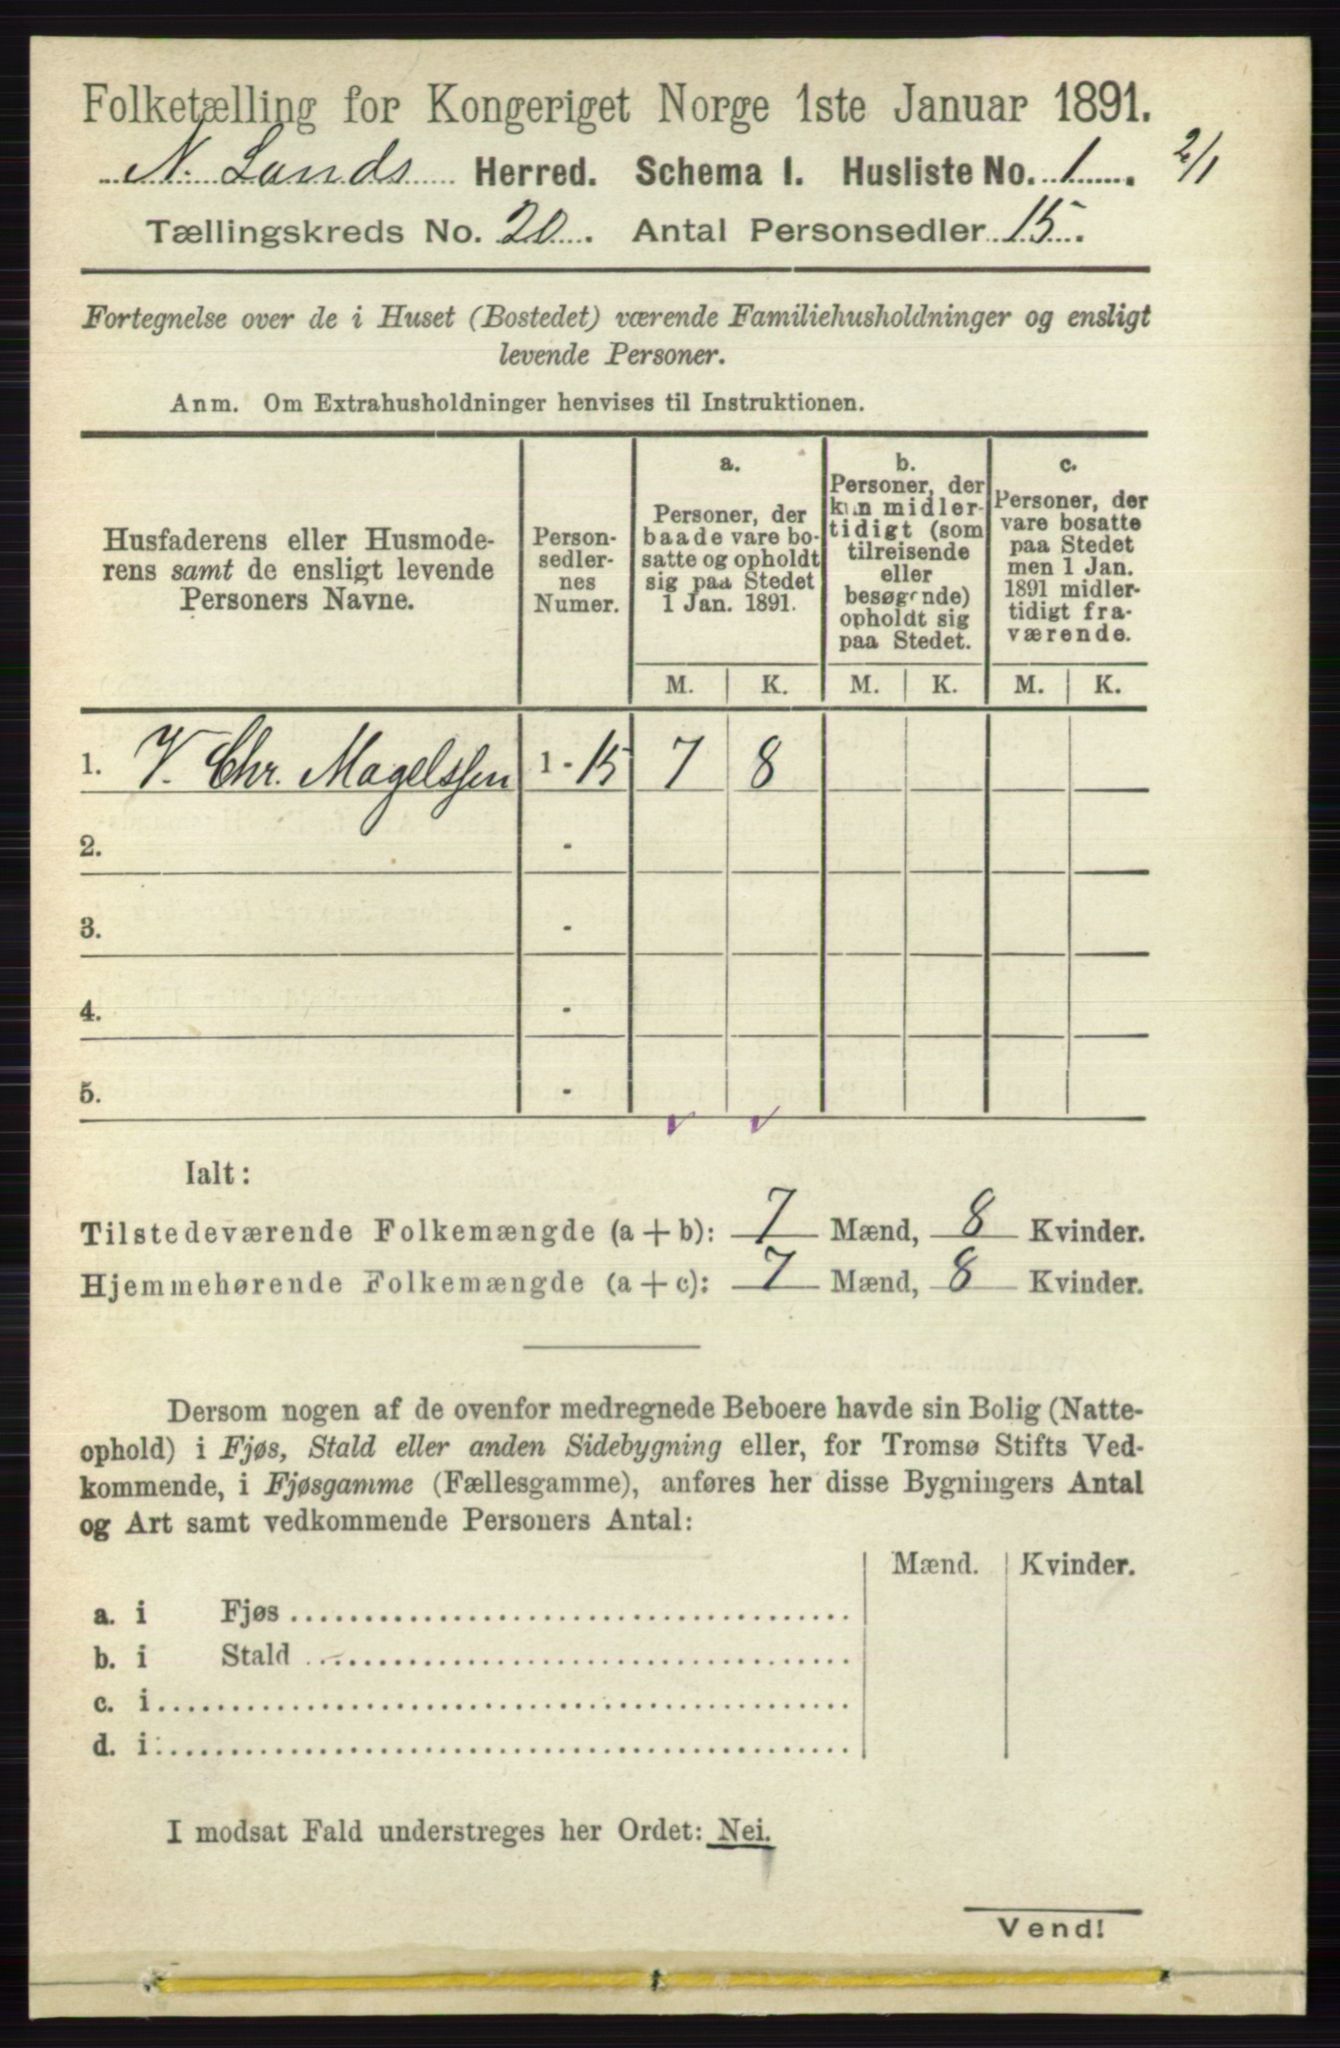 Folketælling for Kongeriget Norge 1ste Januar 1891.
N. Lands Herred. Schema I. Husliste No. 1. 2/1
Tællingskreds No. 20. Antal Personsedler 15.
Fortegnelse over de i Huset (Bostedet) værende Familiehusholdninger og ensligt
levende Personer.
Anm. Om Extrahusholdninger henvises til Instruktionen.
Husfaderens eller Husmode-
rens samt de ensligt levende
Personers Navne.
Person-
sedler-
nes
Numer.
a.
Personer, der
baade vare bo-
satte og opholdt
sig paa Stedet
1 Jan. 1891.
b.
Personer, der
kun midler-
tidigt (som
tilreisende
eller
besøgende)
opholdt sig
paa Stedet.
c.
Personer, der
vare bosatte
paa Stedet
men 1 Jan.
1891 midler-
tidigt fra-
værende.
M. K. M. K. M. K.
1. V. Chr. Magelssen 1 - 15 7 8
2. -
3. -
4. -
5. -
Ialt:
Tilstedeværende Folkemængde (a + b): 7 Mænd, 8 Kvinder.
Hjemmehørende Folkemængde (a + c): 7 Mænd, 8 Kvinder.
Dersom nogen af de ovenfor medregnede Beboere havde sin Bolig (Natte-
ophold) i Fjøs, Stald eller anden Sidebygning eller, for Tromsø Stifts Ved-
kommende, i Fjøsgamme (Fællesgamme), anføres her disse Bygningers Antal
og Art samt vedkommende Personers Antal:
Mænd. Kvinder.
a. i Fjøs
b. i Stald
c. i
d. i
I modsat Fald understreges her Ordet: Nei.
Vend!